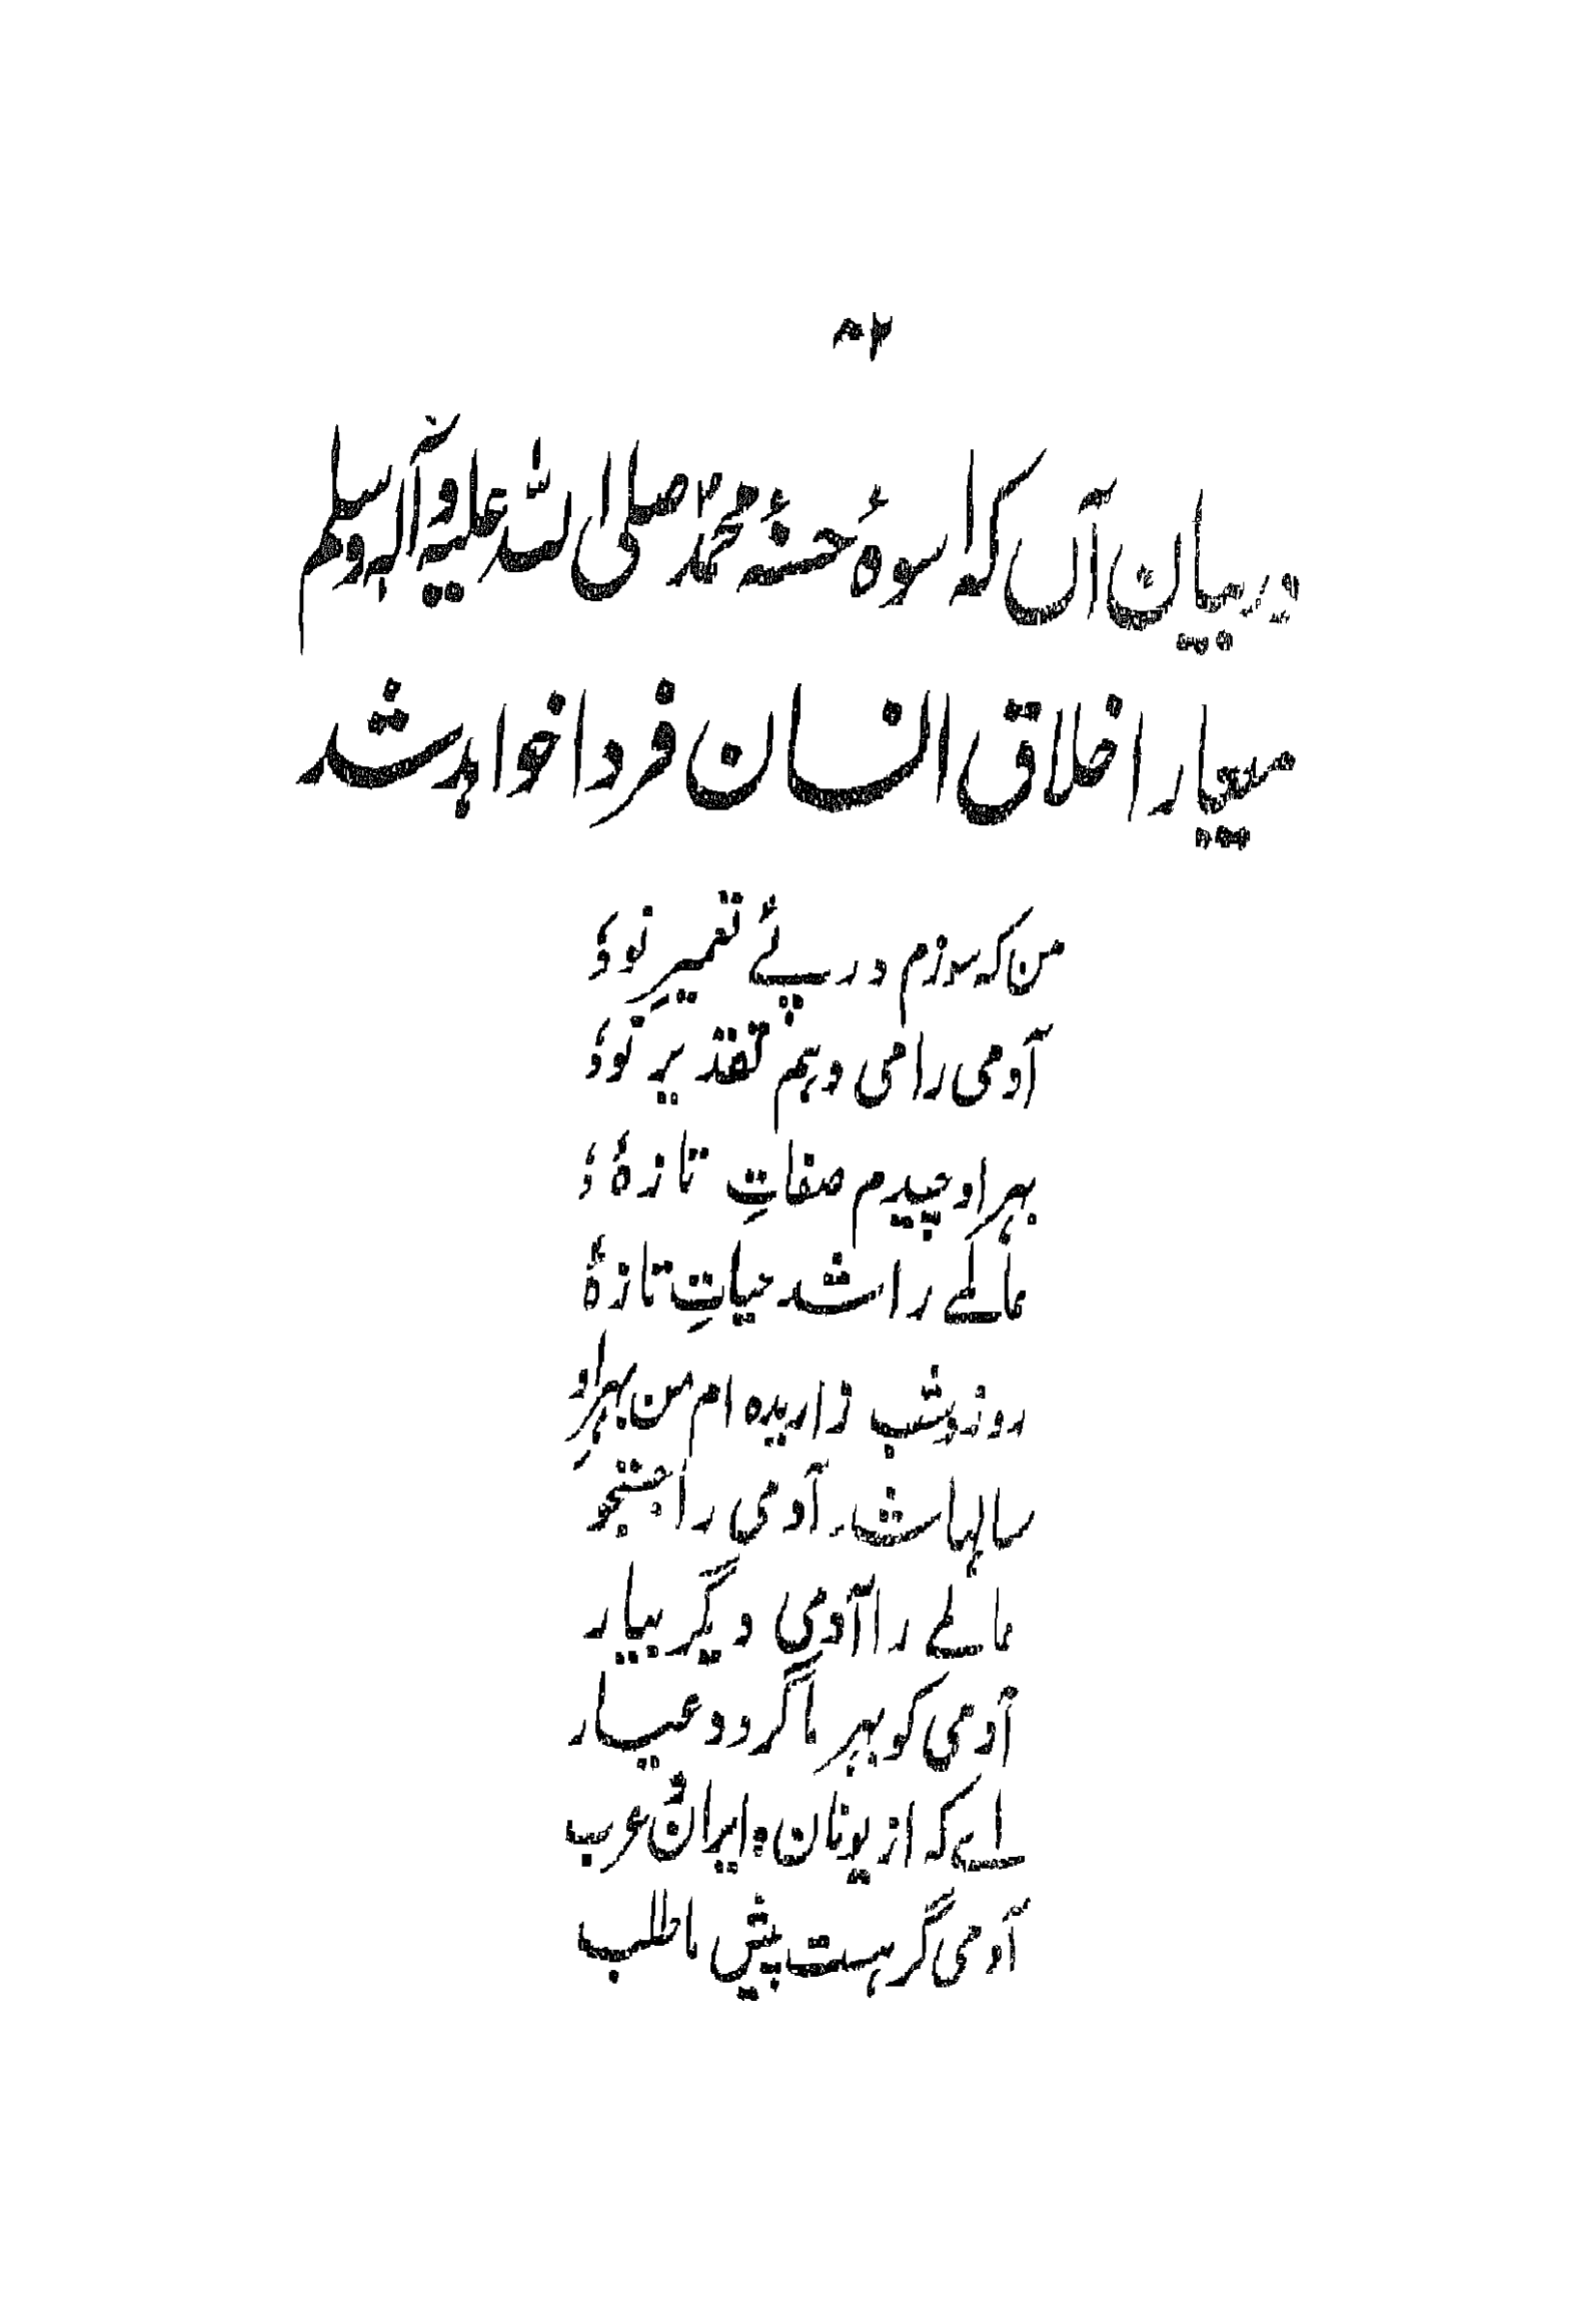 ۸۲
در بیان آں کہ اسوۂ حسنۂ محمدؐ صلی اللہ علیہ و آلہٖ وسلم
معیار اخلاق انسان فردا خواہد شد
من کہ سوزم در پئے تعمیرِ نوؤ
آدمی را می دہم تقدیرِ نوؤ
بہر او چیدم صفاتِ تازۂ ؤ
عالمے را شد حیاتِ تازۂ
روز و شب زاریدہ ام من بہرِ او
سالہا شد آدمی را جستجو
عالمے را آدمی دیگر بیار
آدمی کو بہر ما گردد عیار
اے کہ از یونان و ایران و عرب
آدمی گر ہست پیش ما طلب